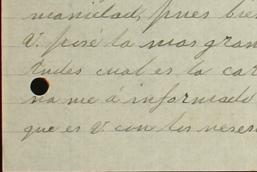 manidad, pues bien
V. posé la mas gran
tudes cual es la car
na me á informado
que es V. con los neses